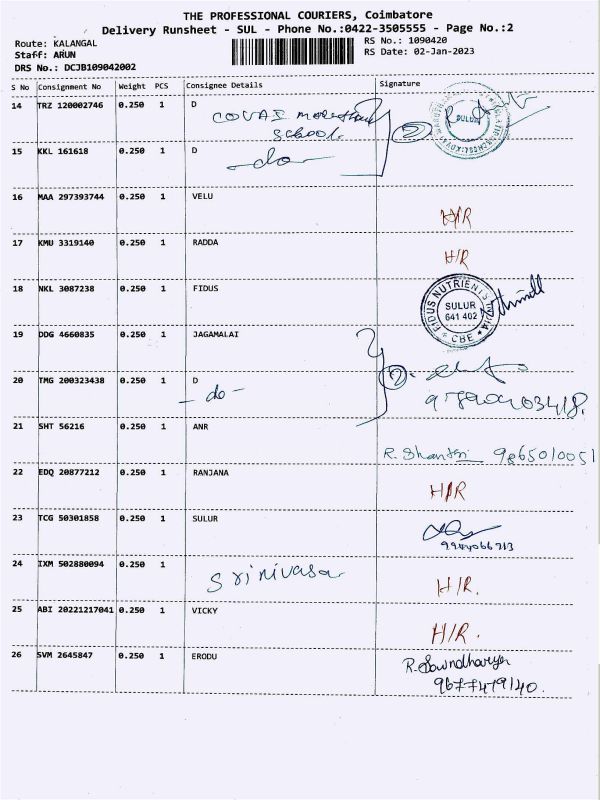 THE PROFESSIONAL COURIERS, Coimbatore
Delivery Runsheet - SUL - Phone No.:0422-3505555 - Page No.:2
Route: KALANGAL
RS No.: 1090420
Staff: ARUN
RS Date: 02-Jan-2023
DRS No.: DCJB109042002
S No Consignment No Weight PCS Consignee Details Signature
14 TRZ 120002746 0.250 1 D
COVAI
School
SULUR
2
15 KKL 161618 0.250 1 D
- do -
16 MAA 297393744 0.250 1 VELU
H/R
17 KMU 3319140 0.250 1 RADDA
H/R
18 NKL 3087238 0.250 1 FIDUS
FIDUS NUTRIENTS INDIA
SULUR
641 402
* CBE *
19 DDG 4660835 0.250 1 JAGAMALAI
2
20 TMG 200323438 0.250 1 D
- do -
21 SHT 56216 0.250 1 ANR
R. Shanthi 9865010051
22 EDQ 20877212 0.250 1 RANJANA
H/R
23 TCG 50301858 0.250 1 SULUR
9944066713
24 IXM 502880094 0.250 1
Srinivasa
H/R.
25 ABI 20221217041 0.250 1 VICKY
H/R.
26 SVM 2645847 0.250 1 ERODU
R. Sowndhariya
9677479140.